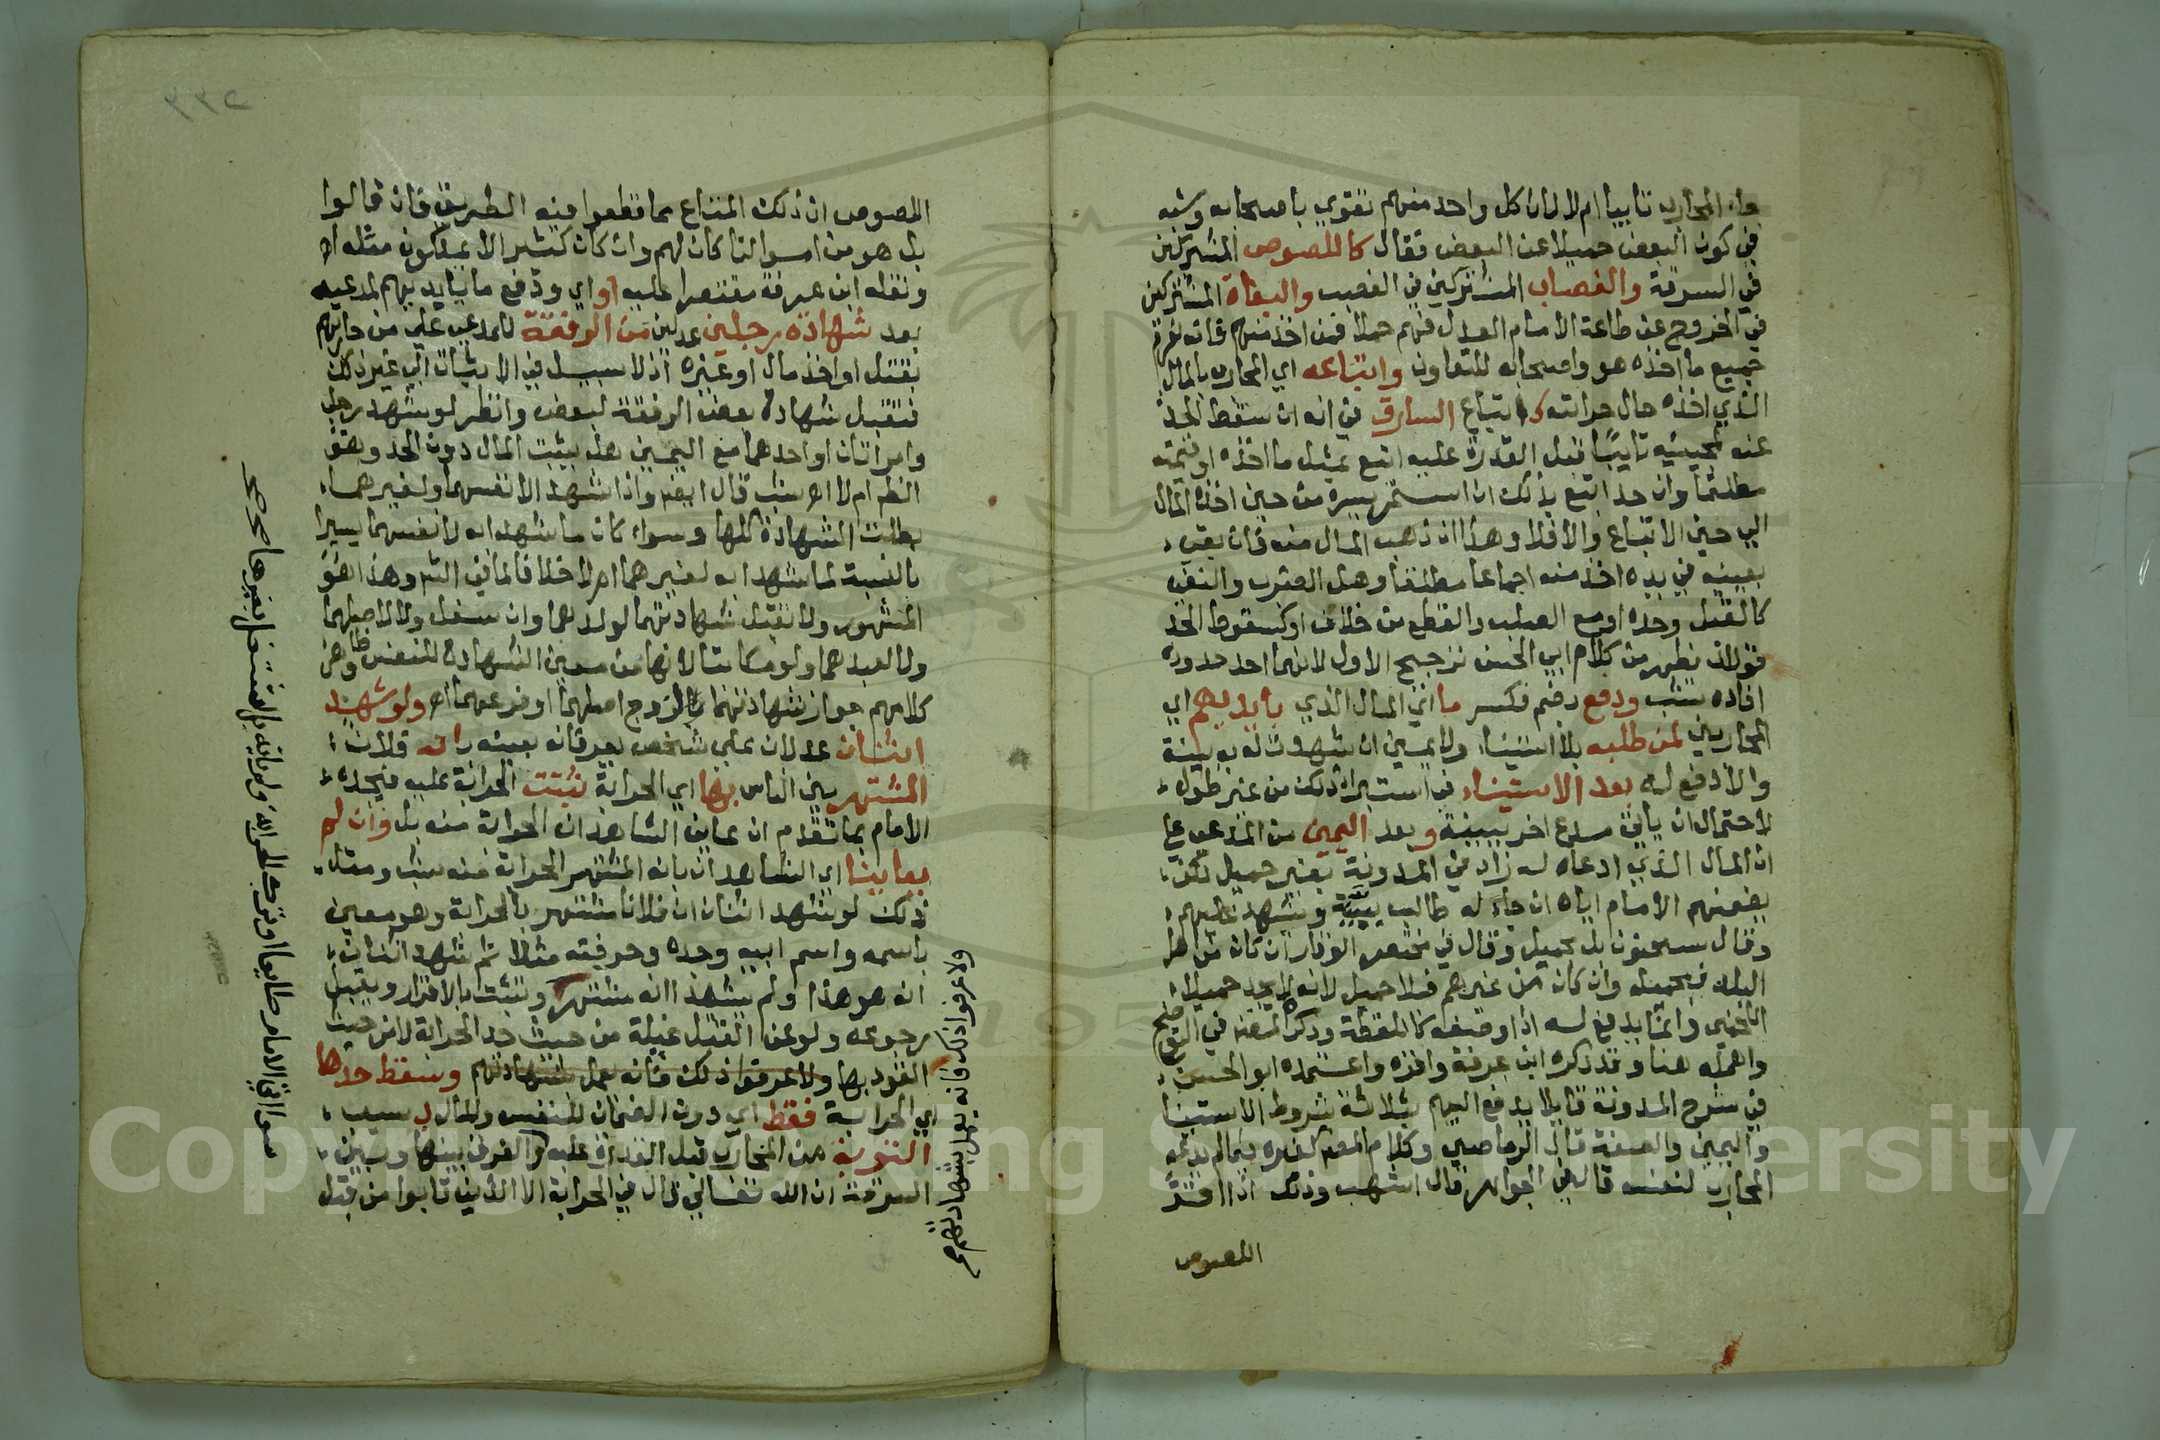 جاء المحارب تايبا ام لا لان كل واحد منهم تقوي باصحابه وشبه
في كون البعض حميلا عن البعض فقال كاللصوص المشتركين
في السرقة والغصاب المشتركين في الغصب والبغاة المشتركين
في الخروج عن طاعة الامام العدل فهم حملا فمن اخذ منهم فانه يغرم
جميع ما اخذه هو واصحابه للتعاون واتباعه اي المحارب بالمال
الذي اخذه حال حرابته كاتباع السارق في انه ان سقط الحد
عنه بمجيئه تايبا قبل القدرة عليه اتبع بمثل ما اخذه او قيمته
مطلقا وان حد اتبع بذلك ان استمر يسره من حين اخذه المال
الي حين الاتباع والا فلا وهذا ان ذهب المال منه فان بقي
بعينه في يده اخذ منه اجماعا مطلقا وهل الضرب والنفي
كالقتل وحده او مع الصلب والقطع من خلاف او كسقوط الحد
قولان يظهر من كلام ابي الحسن ترجيح الاول لانهما احد حدوده
افاده شب ودفع بضم فكسر ما اي المال الذي بايديهم اي
المحاربين لمن طلبه بلا استيناء ولا يمين ان شهدت له به بينة
والا دفع له بعد الاستيناء في استبراء ذلك من غير طول
لاحتمال ان ياتي مدع اخر ببينة وبعد اليمين من المدعي علي
ان المال الذي ادعاه له زاد في المدونة بغير حميل لكن
يضمنهم الامام اياه ان جاء له طالب ببينة ويشهد عليهم
وقال سحنون بل بحميل وقال في مختصر الوقار ان كان من اهل
البلد فبحميل وان كان من غيرهم فبلا حميل لانه لا يجد حميلا
واهمله هنا وقد ذكره ابن عرفة واقره واعتمده ابو الحسن
في شرح المدونة قايلا يدفع اليهم بثلاثة شروط الاستينا
واليمين والصفة قال الرماصي وكلام المص كغيره فيما لم يدعه
المحارب لنفسه قال في الجواهر قال اشهب وذلك اذا اقر
اللصوص
اللصوص ان ذلك المتاع مما قطعوا فيه الطريق فان قالوا
بل هو من اموالنا كان لهم وان كان كثيرا لا يملكون مثله اه
ونقله ابن عرفة مقتصرا عليه او اي ودفع ما بايديهم لمدعيه
بعد شهادة رجلين عدلين من الرفقة للمدعي علي من حاربهم
بقتل او اخذ مال او غيره اذ لا سبيل في الاثبات الي غير ذلك
فتقبل شهادة بعض الرفقة لبعض وانظر لو شهد رجل
وامراتان او احدهما مع اليمين هل يثبت المال دون الحد وهو
الظ ام لا اه شب قال ايضا واذا شهدا لانفسهما ولغيرهما
بطلت الشهادة كلها وسواء كان ما شهدا به لانفسهما يسيرا
بالنسبة لما شهدا به لغيرهما ام لا خلافا لما في التم وهذا هو
المشهور ولا تقبل شهادتهما لولدهما وان سفل ولا لاصلهما
ولا لعبدهما ولو مكاتبا لانها من معني الشهادة للنفس وظاهر
كلامهم جواز شهادتهما لزوج اصلهما او فرعهما اه ولو شهد
اثنان عدلان علي شخص يعرفانه بعينه انه فلان
المشتهر بين الناس بها اي الحرابة ثبتت الحرابة عليه فيحده
الامام بما تقدم ان عاين الشاهدان الحرابة منه بل وان لم
يعايناها اي الشاهدان بانه المشتهر الحرابة منه شب ومثل
ذلك لو شهد اثنان ان فلانا مشتهر بالحرابة وهو معين
باسمه واسم ابيه وحده وحرفته مثلا ثم شهد اثنان
انه هو هذا ولم يشهدا انه مشتهر وتثبت بالاقرار ويقبل
رجوعه ولو عن القتل غيلة من حيث حد الحرابة لا من حيث
القود بها ولا عرفوا ذلك فانه يعمل بشهادتهم وسقط حدها
اي الحرابة فقط اي دون الضمان للنفس والمال بسبب
التوبة من المحارب قبل القدرة عليه والفرق بينها وبين
السرقة ان الله تعالي قال في الحرابة الا الذين تابوا من قبل
ولا عرفوا ذلك فانه يعمل بشهادتهم صح
Copyright © King Saud University
1957